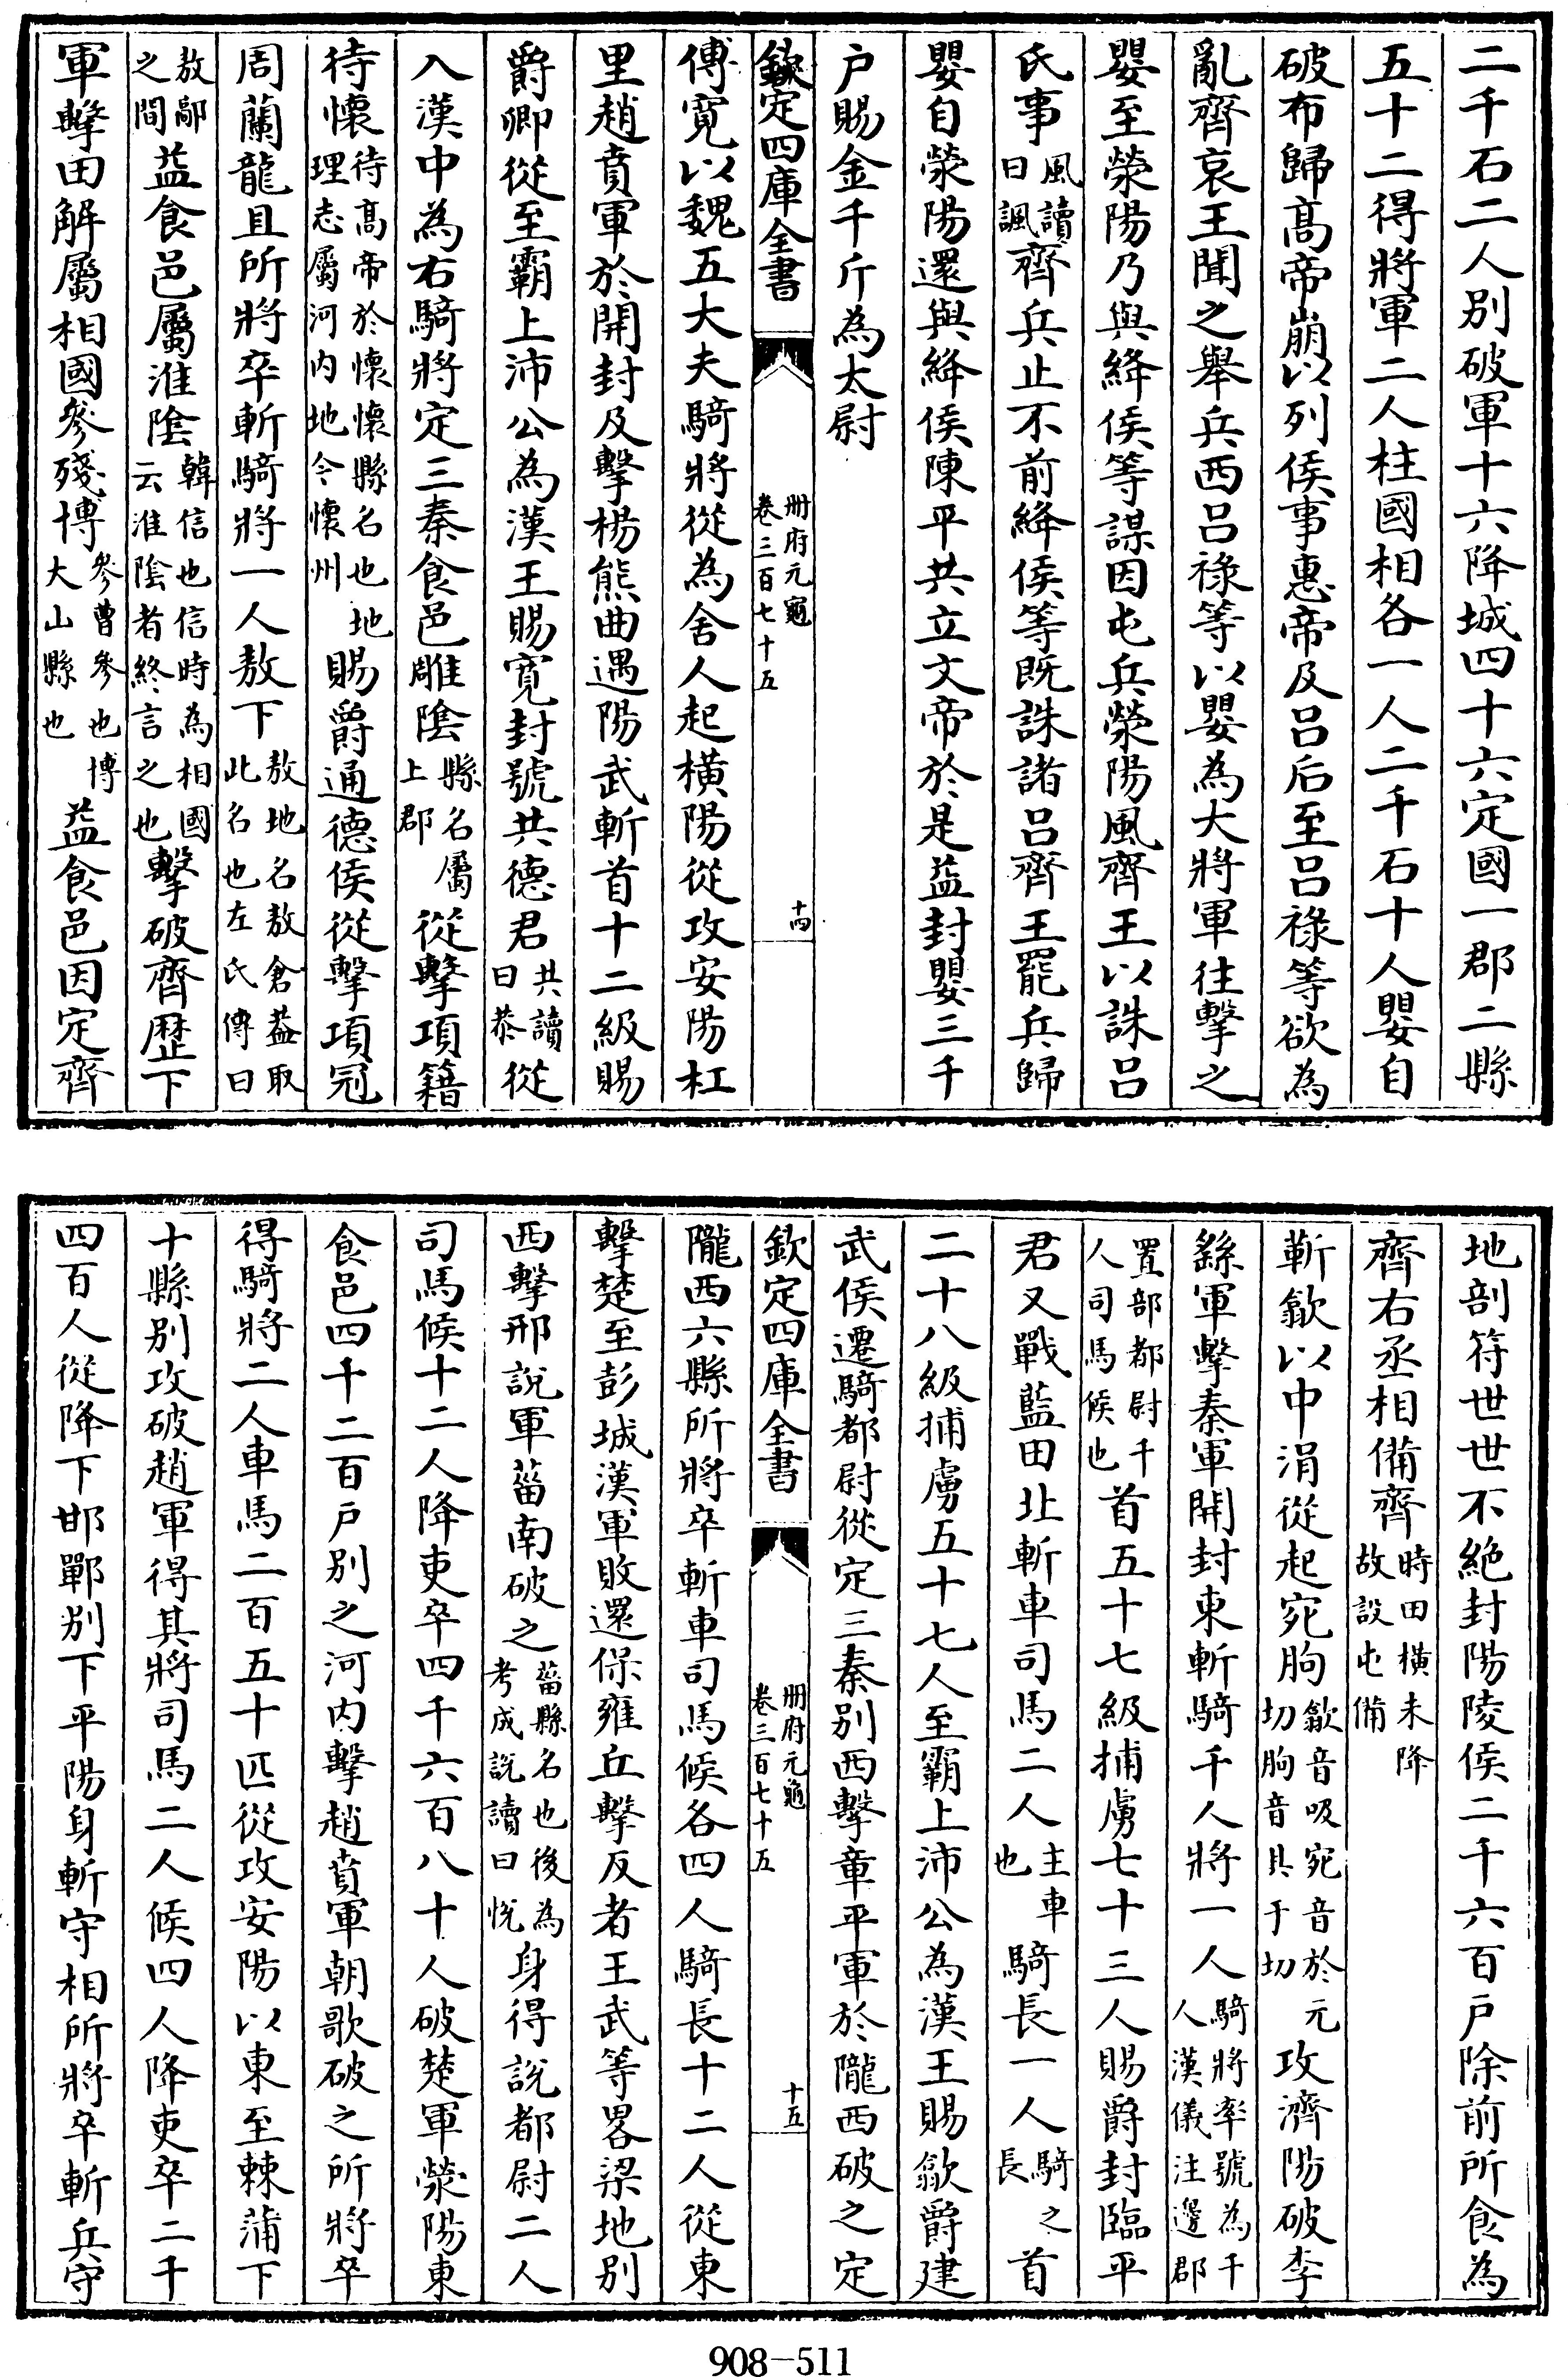 二千石二人别破軍十六降城四十六定國一郡二縣
五十二得將軍二人柱國相各一人二千石十人嬰自
破布歸髙帝崩以列侯事惠帝及吕后至吕祿等欲為
亂齊哀王聞之舉兵西吕祿等以嬰為大將軍往擊之
嬰至滎陽乃與絳侯等謀因屯兵滎陽風齊王以誅吕
氏事風讀曰諷齊兵止不前絳侯等既誅諸吕齊王罷兵歸
嬰自滎陽還與絳侯陳平共立文帝於是益封嬰三千
户賜金千斤為太尉
欽定四庫全書 冊府元龜卷三百七十五 十四
傅寛以魏五大夫騎將從為舍人起橫陽從攻安陽杠
里趙賁軍於開封及擊楊熊曲遇陽武斬首十二級賜
爵卿從至霸上沛公為漢王賜寛封號共德君共讀曰恭從
入漢中為右騎將定三秦食邑雕隂縣名屬上郡從擊項籍
待懷待髙帝於懷懷縣名也地理志屬河内地今懷州賜爵通德侯從擊項冠
周蘭龍且所將卒斬騎將一人敖下敖地名敖倉葢取此名也左氏傳曰
敖鄗之間益食邑屬淮隂韓信也信時為相國云淮隂者終言之也擊破齊歴下
軍擊田解屬相國參殘博參曹參也博大山縣也益食邑因定齊
地剖符世世不絶封陽陵侯二千六百户除前所食為
齊右丞相備齊時田橫未降故設屯備
蘄歙以中涓從起宛朐歙音吸宛音於元切朐音具于切攻濟陽破李
繇軍擊秦軍開封東斬騎千人將一人騎將率號為千人漢儀注邊郡
置部都尉千人司馬候也首五十七級捕虜七十三人賜爵封臨平
君又戰藍田北斬車司馬二人主車也騎長一人騎之長首
二十八級捕虜五十七人至霸上沛公為漢王賜歙爵建
武侯遷騎都尉從定三秦别西擊章平軍於隴西破之定
欽定四庫全書 冊府元龜卷三百七十五 十五
隴西六縣所將卒斬車司馬候各四人騎長十二人從東
擊楚至彭城漢軍敗還保雍丘擊反者王武等畧梁地别
西擊邢說軍菑南破之菑縣名也後為考成說讀曰悅身得說都尉二人
司馬候十二人降吏卒四千六百八十人破楚軍滎陽東
食邑四千二百户别之河内擊趙賁軍朝歌破之所將卒
得騎將二人車馬二百五十匹從攻安陽以東至棘蒲下
十縣别攻破趙軍得其將司馬二人候四人降吏卒二千
四百人從降下邯鄲别下平陽身斬守相所將卒斬兵守
908-511